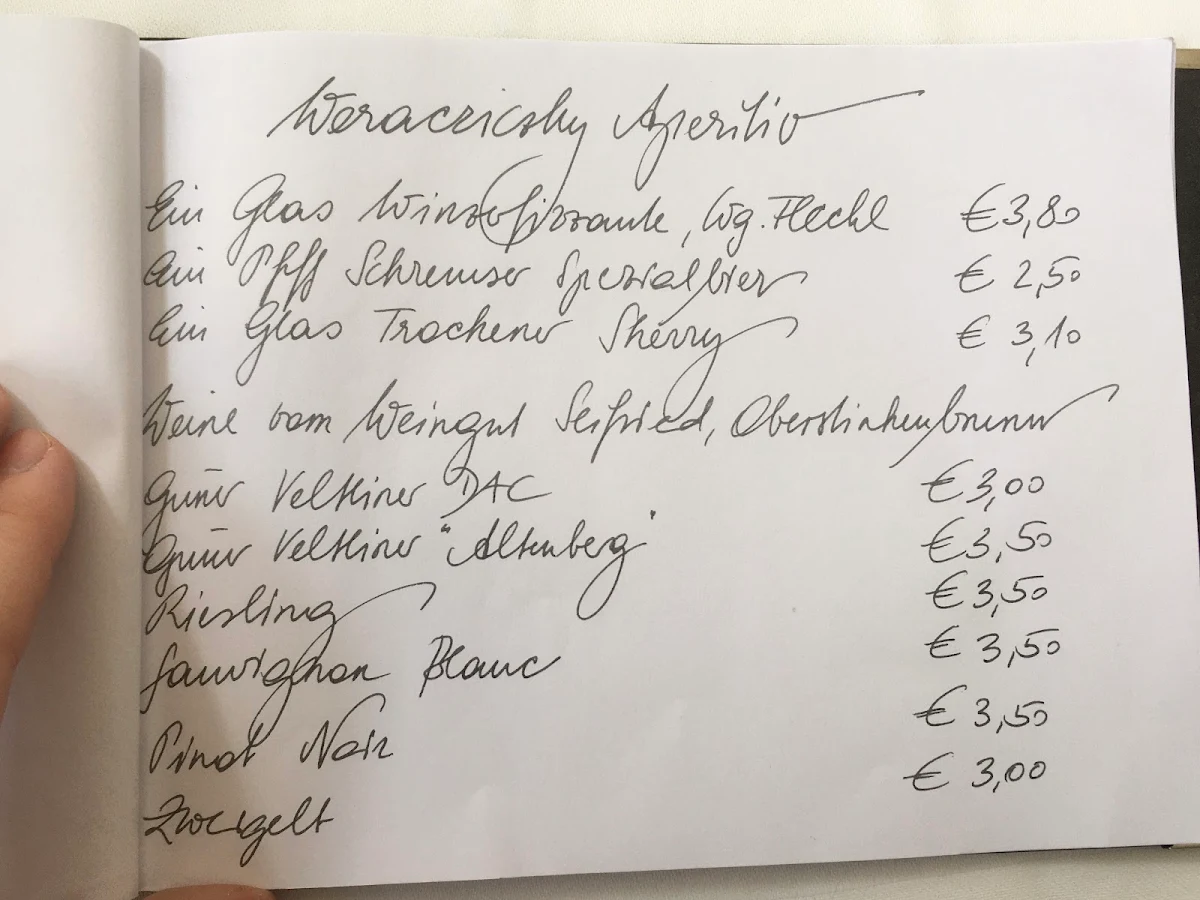 Weracziczky Aperitiv
Ein Glas Winzerfrizzante, Wg. Fleckl € 3,80
Ein Pfiff Schremser Spezialbier € 2,50
Ein Glas Trockener Sherry € 3,10
Weine vom Weingut Seifried, Oberstinkenbrunn
Grüner Veltliner DAC € 3,00
Grüner Veltliner "Altenberg" € 3,50
Riesling € 3,50
Sauvignon Blanc € 3,50
Pinot Noir € 3,50
Zweigelt € 3,00